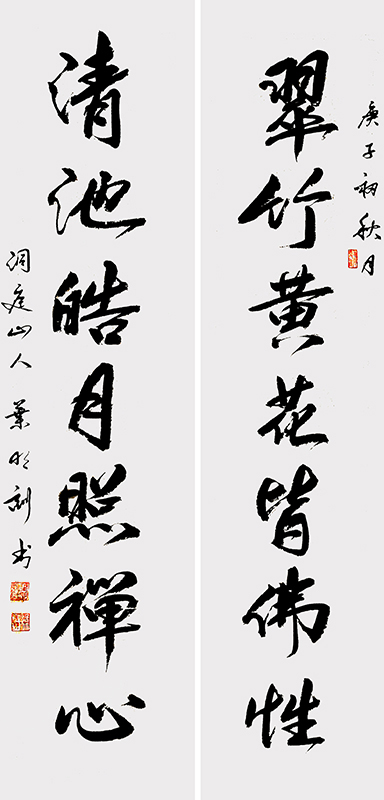 庚子初秋月
翠竹黄花皆佛性
清池皓月照禪心
洞庭山人葉书